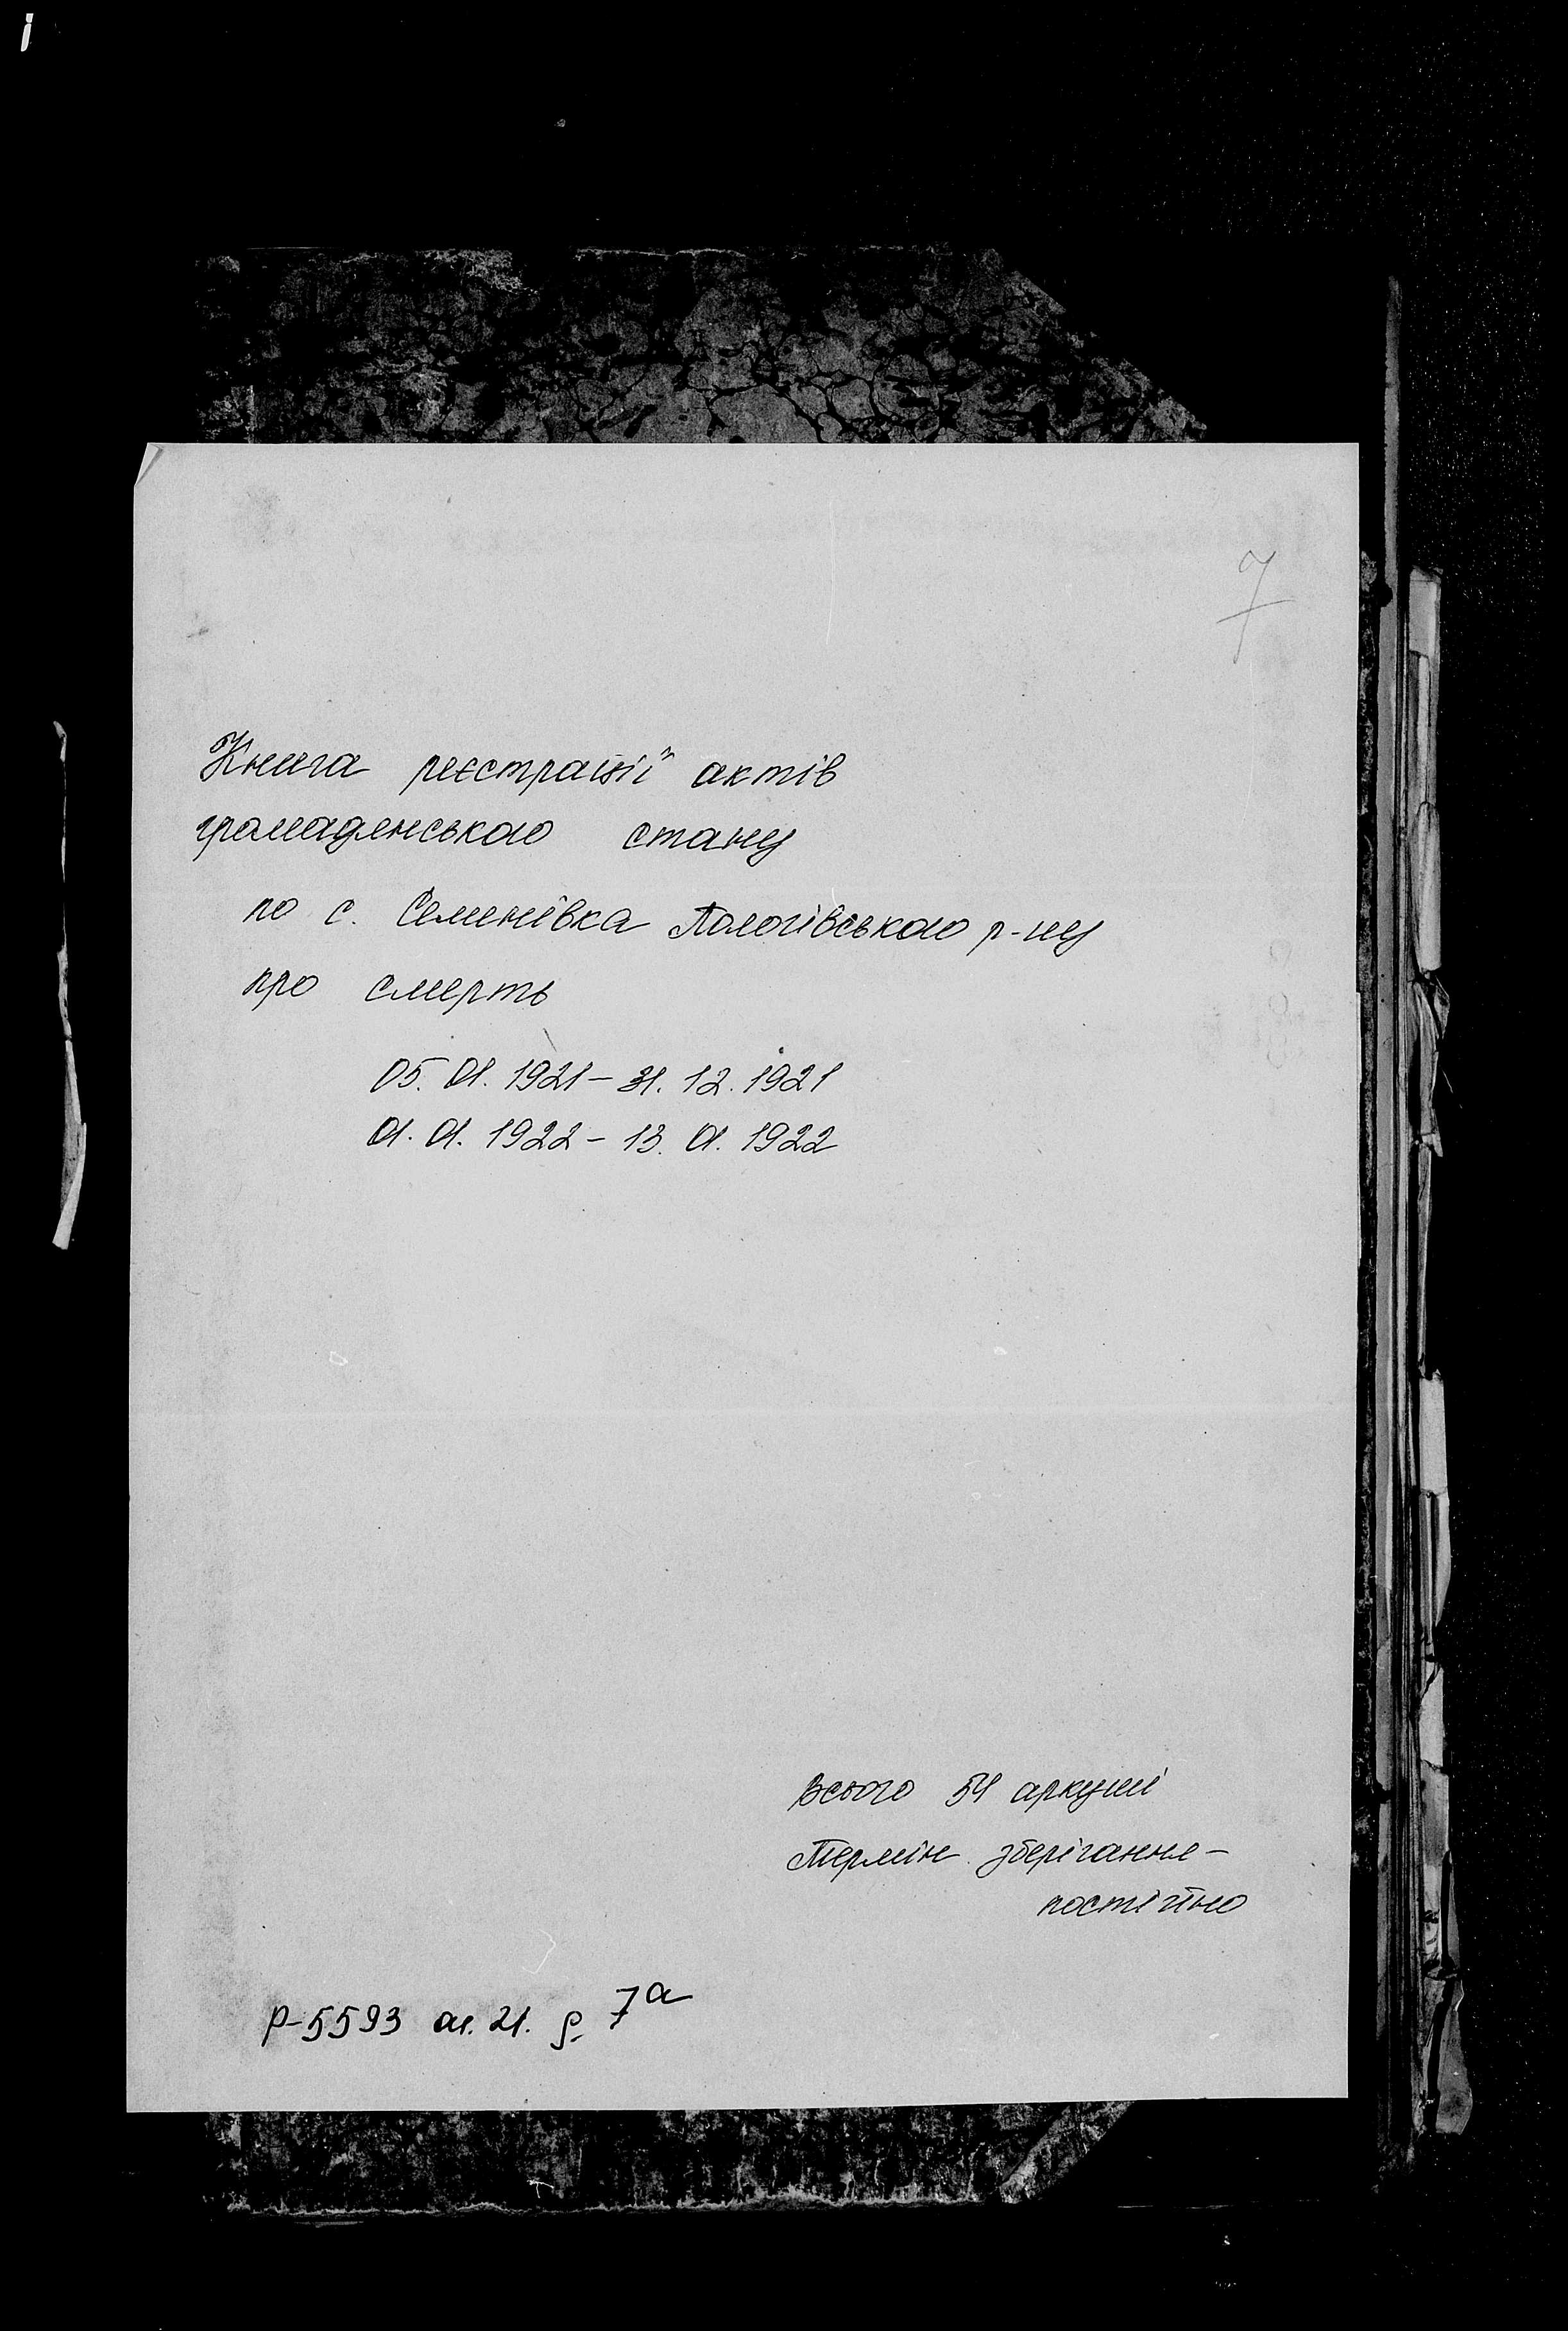 7
Книга реєстрації актів
громадянського стану
по с. Семенівка Пологівського р-ну
про смерть
05. 01. 1921 – 31. 12. 1921
01. 01. 1922 – 13. 01. 1922
Всього 54 аркуші
Термін зберігання –
постійно
Р-5593 оп. 21. д. 7а